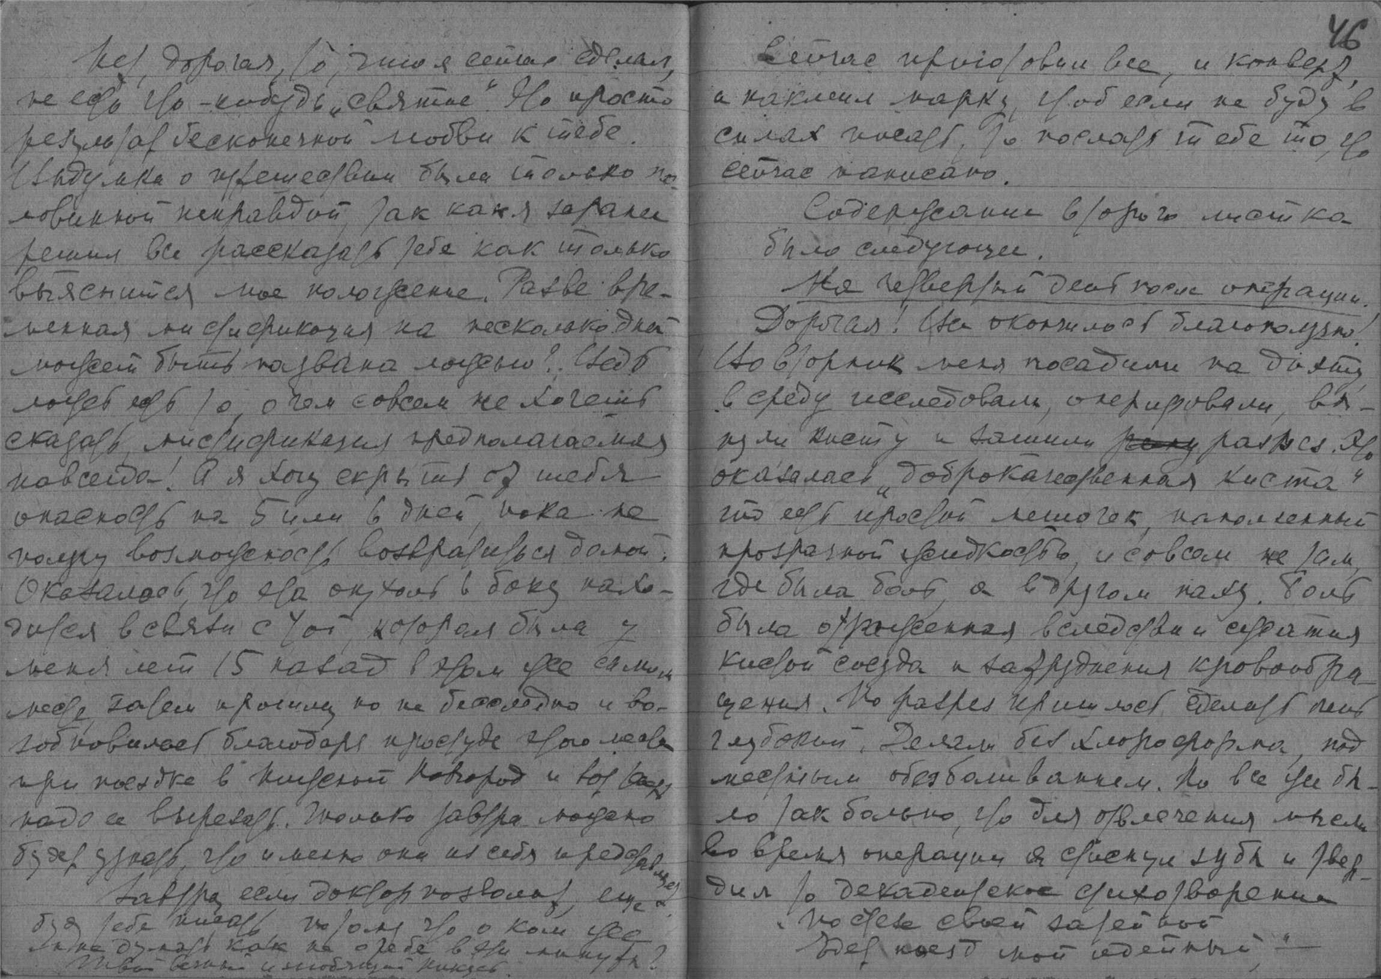 Нет, дорогая, то, что я сейчас сделал,
не есть что-нибудь „святое“. Это просто
результат бесконечной любви к тебе.
Выдумка о путешествии была только по-
ловинной неправдой, так как я заранее
решил все рассказать тебе как только
выяснится мое положение. Разве вре-
менная мистификация на несколько дней
может быть названа ложью? Ведь
ложь есть то, о чем совсем не хочешь
сказать, мистификация предполагаемая
навсегда! А я хочу скрыть от тебя
опасность на 5 или 6 дней, пока не
получу возможность возвратиться домой.
Оказалось, что эта опухоль в боку нахо-
дится в связи с той, которая была у
меня лет 15 назад в том же самом
месте, затем прошла, но не бесследно и во-
зобновилась благодаря простуде этого лета
при поездке в Нижний Новгород и вот
надо ее вырезать. Только завтра можно
будет узнать, что именно она из себя представляет.
Завтра, если доктор позволит, еще
буду тебе писать потому что о ком же
мне думать как не о тебе в эти минуты?
Твой вечный и любящий
46
Сейчас приготовил все, и конверт,
и наклеил марку, чтоб если не буду в
силах писать, то послать тебе то, что
сейчас написано.
Содержание второго листка
было следующее.
На четвертый день после операции.
Дорогая! Все окончилось благополучно!
Во вторник меня посадили на диэту,
в среду исследовали, оперировали, вы-
нули кисту и зашили разрез. Это
оказалась „доброкачественная киста“
то есть простой мешочек, наполненный
прозрачной жидкостью, и совсем не там,
где была боль, а в другом паху. Боль
была отраженная вследствии сжатия
кистой сосуда и затруднения кровообра-
щения. Но разрез пришлось сделать очень
глубокий. Делали без хлороформа, под
местным обезболиванием. Но все же бы-
ло так больно, что для отвлечения мысли
во время операции я стиснул зубы и твер-
дил то декадентское стихотворение
После своей затейной
Идет поезд мой идейный,“ —